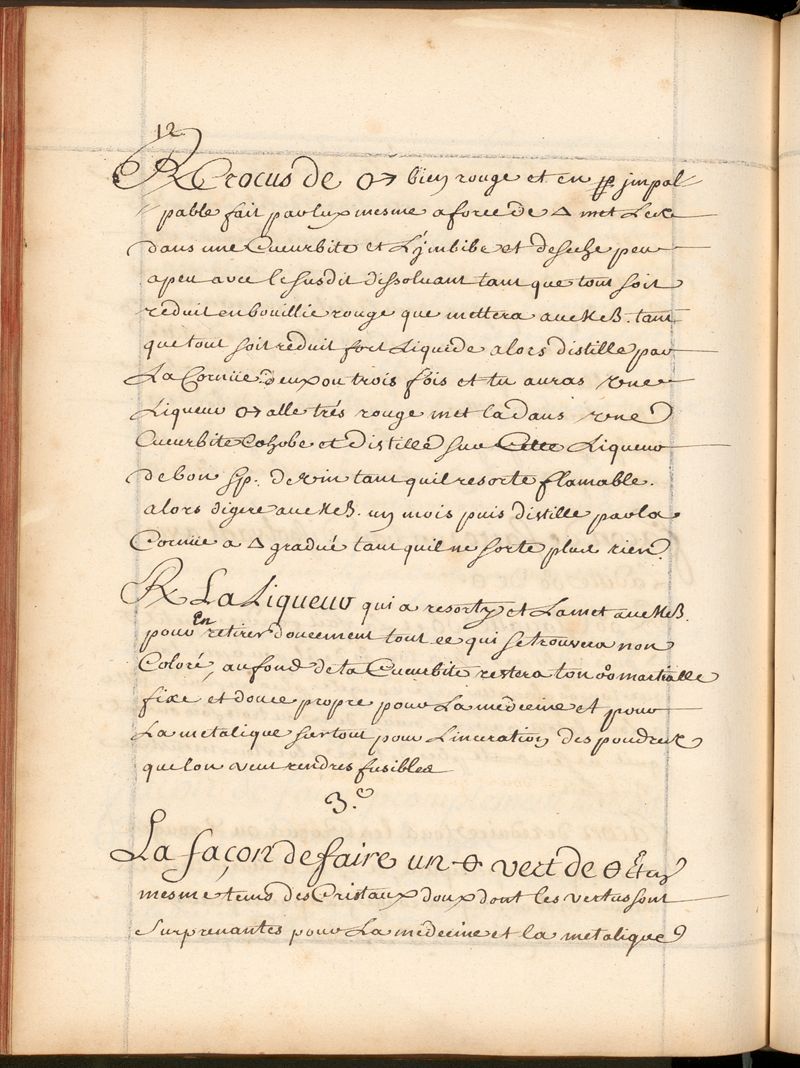 12
℞ Crocus de ♂ bien rouge et en jmpal-
pable fait par luy mesme a force de 🜂 met Lex
dans une Cucurbite et L'jmbibe et deseche peu
a peu avec le susdit dissoluant tant que tout soit
reduit en bouillie rouge que mettera au MB. tant
que tout soit reduit fort Liquide alors distille par
La Cornüe deux ou trois fois et tu auras vne
Liqueur ♂ alle trés rouge met la dans vne
Cucurbite Cohobe et distille sur Cette Liqueur
de bon Sp. de vin tant quil resorte flamable.
alors digere au MB. un mois puis distille par la
Cornüe a 🜂 gradué tant quil ne sorte plus rien.
℞ La Liqueur qui a resorty et La met au MB.
pour En retirer doucement tout ce qui se trouvera non
Coloré, au fond de ta Cucurbite restera ton martialle
fixe et douce propre pour La medecine et pour
La metalique surtout pour L'inceration des poudrex
que lon veut rendres fusibles
3.e
La façon de faire un 🜕 vert de et en
mesme tems des Cristaux doux dont les vertus sont
Surprenantes pour La medecine et la metalique